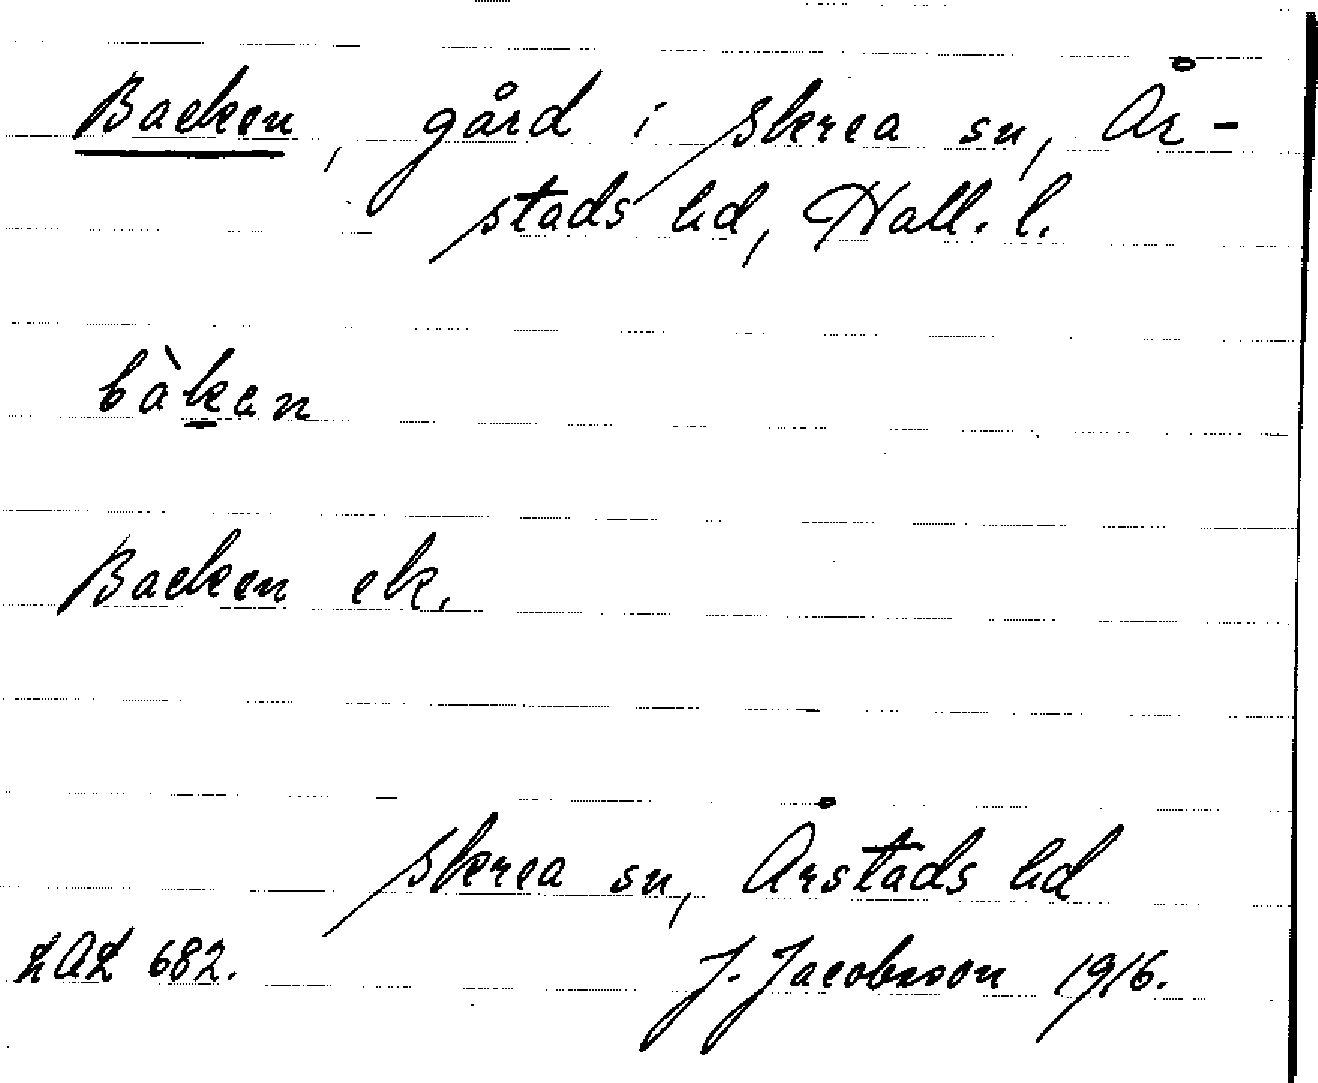 Backen, gård i Skrea sn, År-
stads hd, Hall. l.
bàkan
Backen ek.
Skrea sn, Årstads hd
LAL 682.
J. Jacobsson 1916.